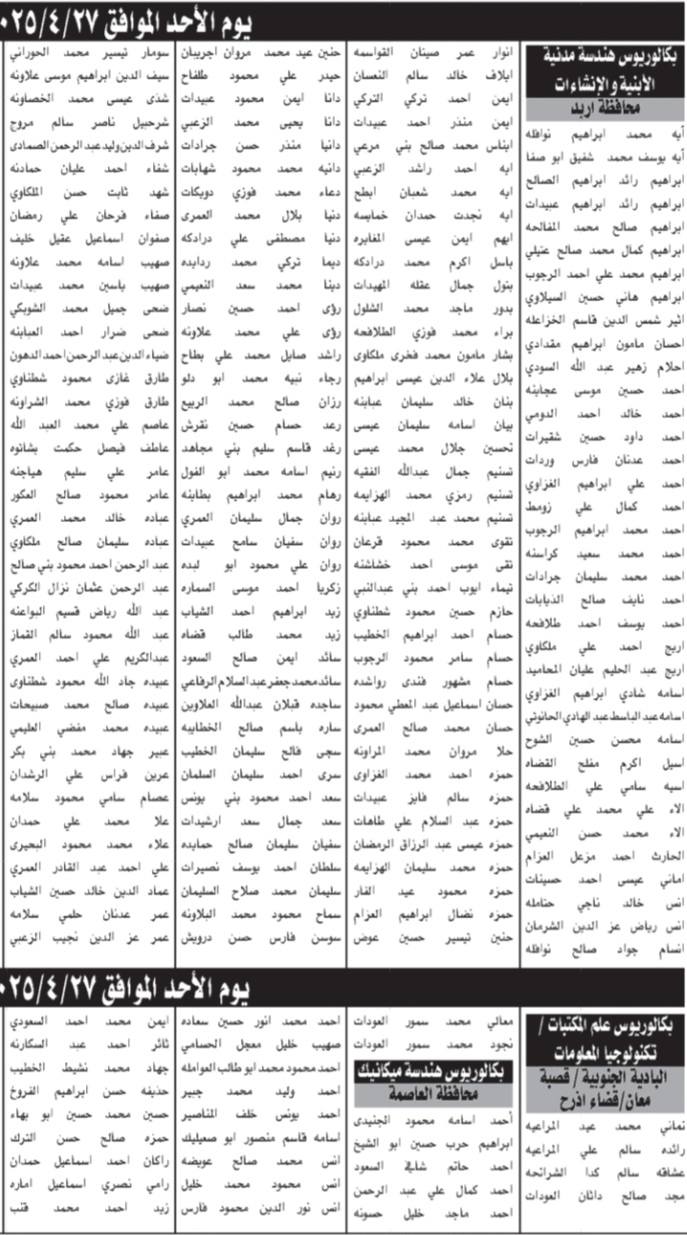 يوم الأحد الموافق ٢٠٢٥/٤/٢٧
بكالوريوس هندسة مدنية
الأبنية والإنشاءات
محافظة اربد
آيه محمد ابراهيم نوافله
آيه يوسف محمد شفيق ابو صفا
ابراهيم رائد ابراهيم الصالح
ابراهيم رائد ابراهيم عبيدات
ابراهيم صالح محمد الفالحه
ابراهيم كمال محمد صالح عتيلي
ابراهيم محمد علي احمد الرجوب
ابراهيم هاني حسين السيلاوي
اثير شمس الدين قاسم الخزاعله
احسان مامون ابراهيم مقدادي
احلام زهير عبد الله السودي
احمد حسين موسى عجابنه
احمد خالد احمد الدومي
احمد داود حسين شقيرات
احمد عدنان فارس وردات
احمد علي ابراهيم الغزاوي
احمد كمال علي زومط
احمد محمد ابراهيم الرجوب
احمد محمد سعيد كراسنه
احمد محمد سليمان جرادات
احمد نايف صالح الذيابات
احمد يوسف احمد طلافحه
اريج احمد علي ملكاوي
اريج عبد الحليم عليان المحاميد
اسامه شادي ابراهيم الغزاوي
اسامه عبد الباسط عبد الهادي الحانوتي
اسامه محسن حسين الشوح
اسيل اكرم مفلح القضاه
اسيه سامي علي الطلافحه
الاء علي محمد علي قضاه
الاء محمد حسن النعيمي
الحارث احمد مزعل العزام
اماني عيسى احمد حسينات
انس خالد ناجي حتامله
انس رياض عز الدين الشرمان
انسام جواد صالح نوافله
انوار عمر صيتان القواسمه
ايلاف خالد سالم النعسان
ايمن احمد تركي التركي
ايمن منذر احمد عبيدات
ايناس محمد صالح بني مرعي
ايه احمد راشد الزعبي
ايه محمد شعبان ابطح
ايه نجدت حمدان خمايسه
ايهم ايمن عيسى المغايره
باسل اكرم محمد درادكه
بتول جمال عقله المهيدات
بدور ماجد محمد الشلول
براء محمد فوزي الطلافحه
بشار مامون محمد فخري ملكاوي
بلال علاء الدين عيسى ابراهيم
بنان خالد سليمان عبابنه
بيان اسامه سليمان عيسى
تحسين جلال محمد عيسى
تسنيم جمال عبدالله الفقيه
تسنيم رمزي محمد الهزايمه
تسنيم محمد عبد المجيد عبابنه
تقوى محمد محمود قرعان
تقى موسى احمد خشاشنه
تيماء ايوب احمد بني عبدالنبي
حازم حسين محمود شطناوي
حسام احمد ابراهيم الخطيب
حسام سامر محمود الرجوب
حسام مشهور فندي رواشده
حسان اسماعيل عبد المعطي محمود
حسان محمد صالح العمري
حلا مروان محمد المراونه
حمزه احمد محمد الغزاوي
حمزه سالم فايز عبيدات
حمزه عبد السلام علي طاهات
حمزه عيسى عبد الرزاق الرمضان
حمزه محمد سليمان الهزايمه
حمزه محمود عيد الفار
حمزه نضال ابراهيم العزام
حنين تيسير حسين عوض
حنين عيد محمد مروان اجريبان
حيدر علي محمود طلفاح
دانا ايمن محمود عبيدات
دانا يحيى محمد الزعبي
دانيا منذر حسن جرادات
دانيه محمد محمود شهابات
دعاء محمد فوزي دويكات
دنيا بلال محمد العمري
دنيا مصطفى علي درادكه
ديما تركي محمد ردايده
دينا محمد سعد النعيمي
رؤى احمد حسين نصار
رؤى علي محمد علاونه
راشد صايل محمد علي بطاح
رجاء نبيه محمد ابو دلو
رزان صالح محمد الربيع
رعد حسام حسين نقرش
رغد قاسم سليم بني مجاهد
رنيم اسامه محمد ابو الفول
رهام محمد ابراهيم بطاينه
روان جمال سليمان العمري
روان سفيان سامح عبيدات
روان علي محمود ابو لبده
زكريا احمد موسى السماره
زيد ابراهيم احمد الشياب
زيد محمد طالب قضاه
سائد ايمن صالح السعود
سائد محمد جعفر عبد السلام الرفاعي
ساجده قبلان عبدالله العلاوين
ساره باسم صالح الخطايبه
سجى فالح سليمان الخطيب
سرى احمد سليمان السلمان
سعد احمد محمود بني يونس
سعد جمال سعد ارشيدات
سفيان سليمان صالح حمايده
سلطان احمد يوسف نصيرات
سليمان محمد صلاح السليمان
سماح محمود محمد البلاونه
سوسن فارس حسن درويش
سومار تيسير محمد الحوراني
سيف الدين ابراهيم موسى علاونه
شذى عيسى محمد الخصاونه
شرحبيل ناصر سالم مروح
شرف الدين وليد عبد الرحمن الصمادي
شفاء احمد عليان حمادنه
شهد ثابت حسن الملكاوي
صفاء فرحان علي رمضان
صفوان اسماعيل عقيل خليف
صهيب اسامه محمد علاونه
صهيب ياسين محمد عبيدات
ضحى جميل محمد الشويكي
ضحى ضرار احمد العبابنه
ضياء الدين عبد الرحمن احمد الدهون
طارق غازي محمود شطناوي
طارق فوزي محمد الشراونه
عاصم علي محمد العبد الله
عاطف فيصل حكمت بشاتوه
عامر علي سليم هياجنه
عامر محمود صالح العكور
عباده خالد محمد العمري
عباده سليمان صالح ملكاوي
عبد الرحمن احمد محمود بني صالح
عبد الرحمن عثمان نزال الكركي
عبد الله رياض قسيم البواعنه
عبد الله محمود سالم القماز
عبدالكريم علي احمد العمري
عبيده جاد الله محمود شطناوي
عبيده صالح محمد صبيحات
عبيده محمد مفضي العليمي
عبير جهاد محمد بني بكر
عرين فراس علي الرشدان
عصام سامي محمود سلامه
علا محمد علي حمدان
علاء محمد محمود البحيري
علي احمد عبد القادر العمري
عماد الدين خالد حسين الشياب
عمر عدنان حلمي سلامه
عمر عز الدين نجيب الزعبي
يوم الأحد الموافق ٢٠٢٥/٤/٢٧
بكالوريوس علم المكتبات /
تكنولوجيا المعلومات
البادية الجنوبية / قصبة
معان/قضاء اذرح
تماني محمد عيد المراعيه
رائده سالم علي المراعيه
عشاقه سالم كدا الشراتحه
مجد صالح دانان العودات
معالي محمد سمور العودات
نجود محمد سمور العودات
بكالوريوس هندسة ميكانيك
محافظة العاصمة
أحمد اسامه محمود الجنيدي
ابراهيم حرب حسين ابو الشيخ
احمد حاتم شافي السعود
احمد كمال علي عبد الرحمن
احمد ماجد خليل حسونه
احمد محمد انور حسين سعاده
صهيب خليل معجل الحسامي
احمد محمود محمد ابو طالب العوامله
احمد وليد محمد جبير
احمد يونس خلف المناصير
اسامه قاسم منصور ابو صعيليك
انس محمد صالح عويضه
انس محمود محمد خليل
انس نور الدين محمود فارس
ايمن محمد احمد السعودي
ثائر احمد عبد السكارنه
جهاد محمد نشيط الخطيب
حذيفه حسن ابراهيم الفروخ
حسين محمد حسين ابو بهاء
حمزه صالح حسن الترك
راكان احمد اسماعيل حمدان
رامي نصري اسماعيل اماره
زيد احمد محمد قنب